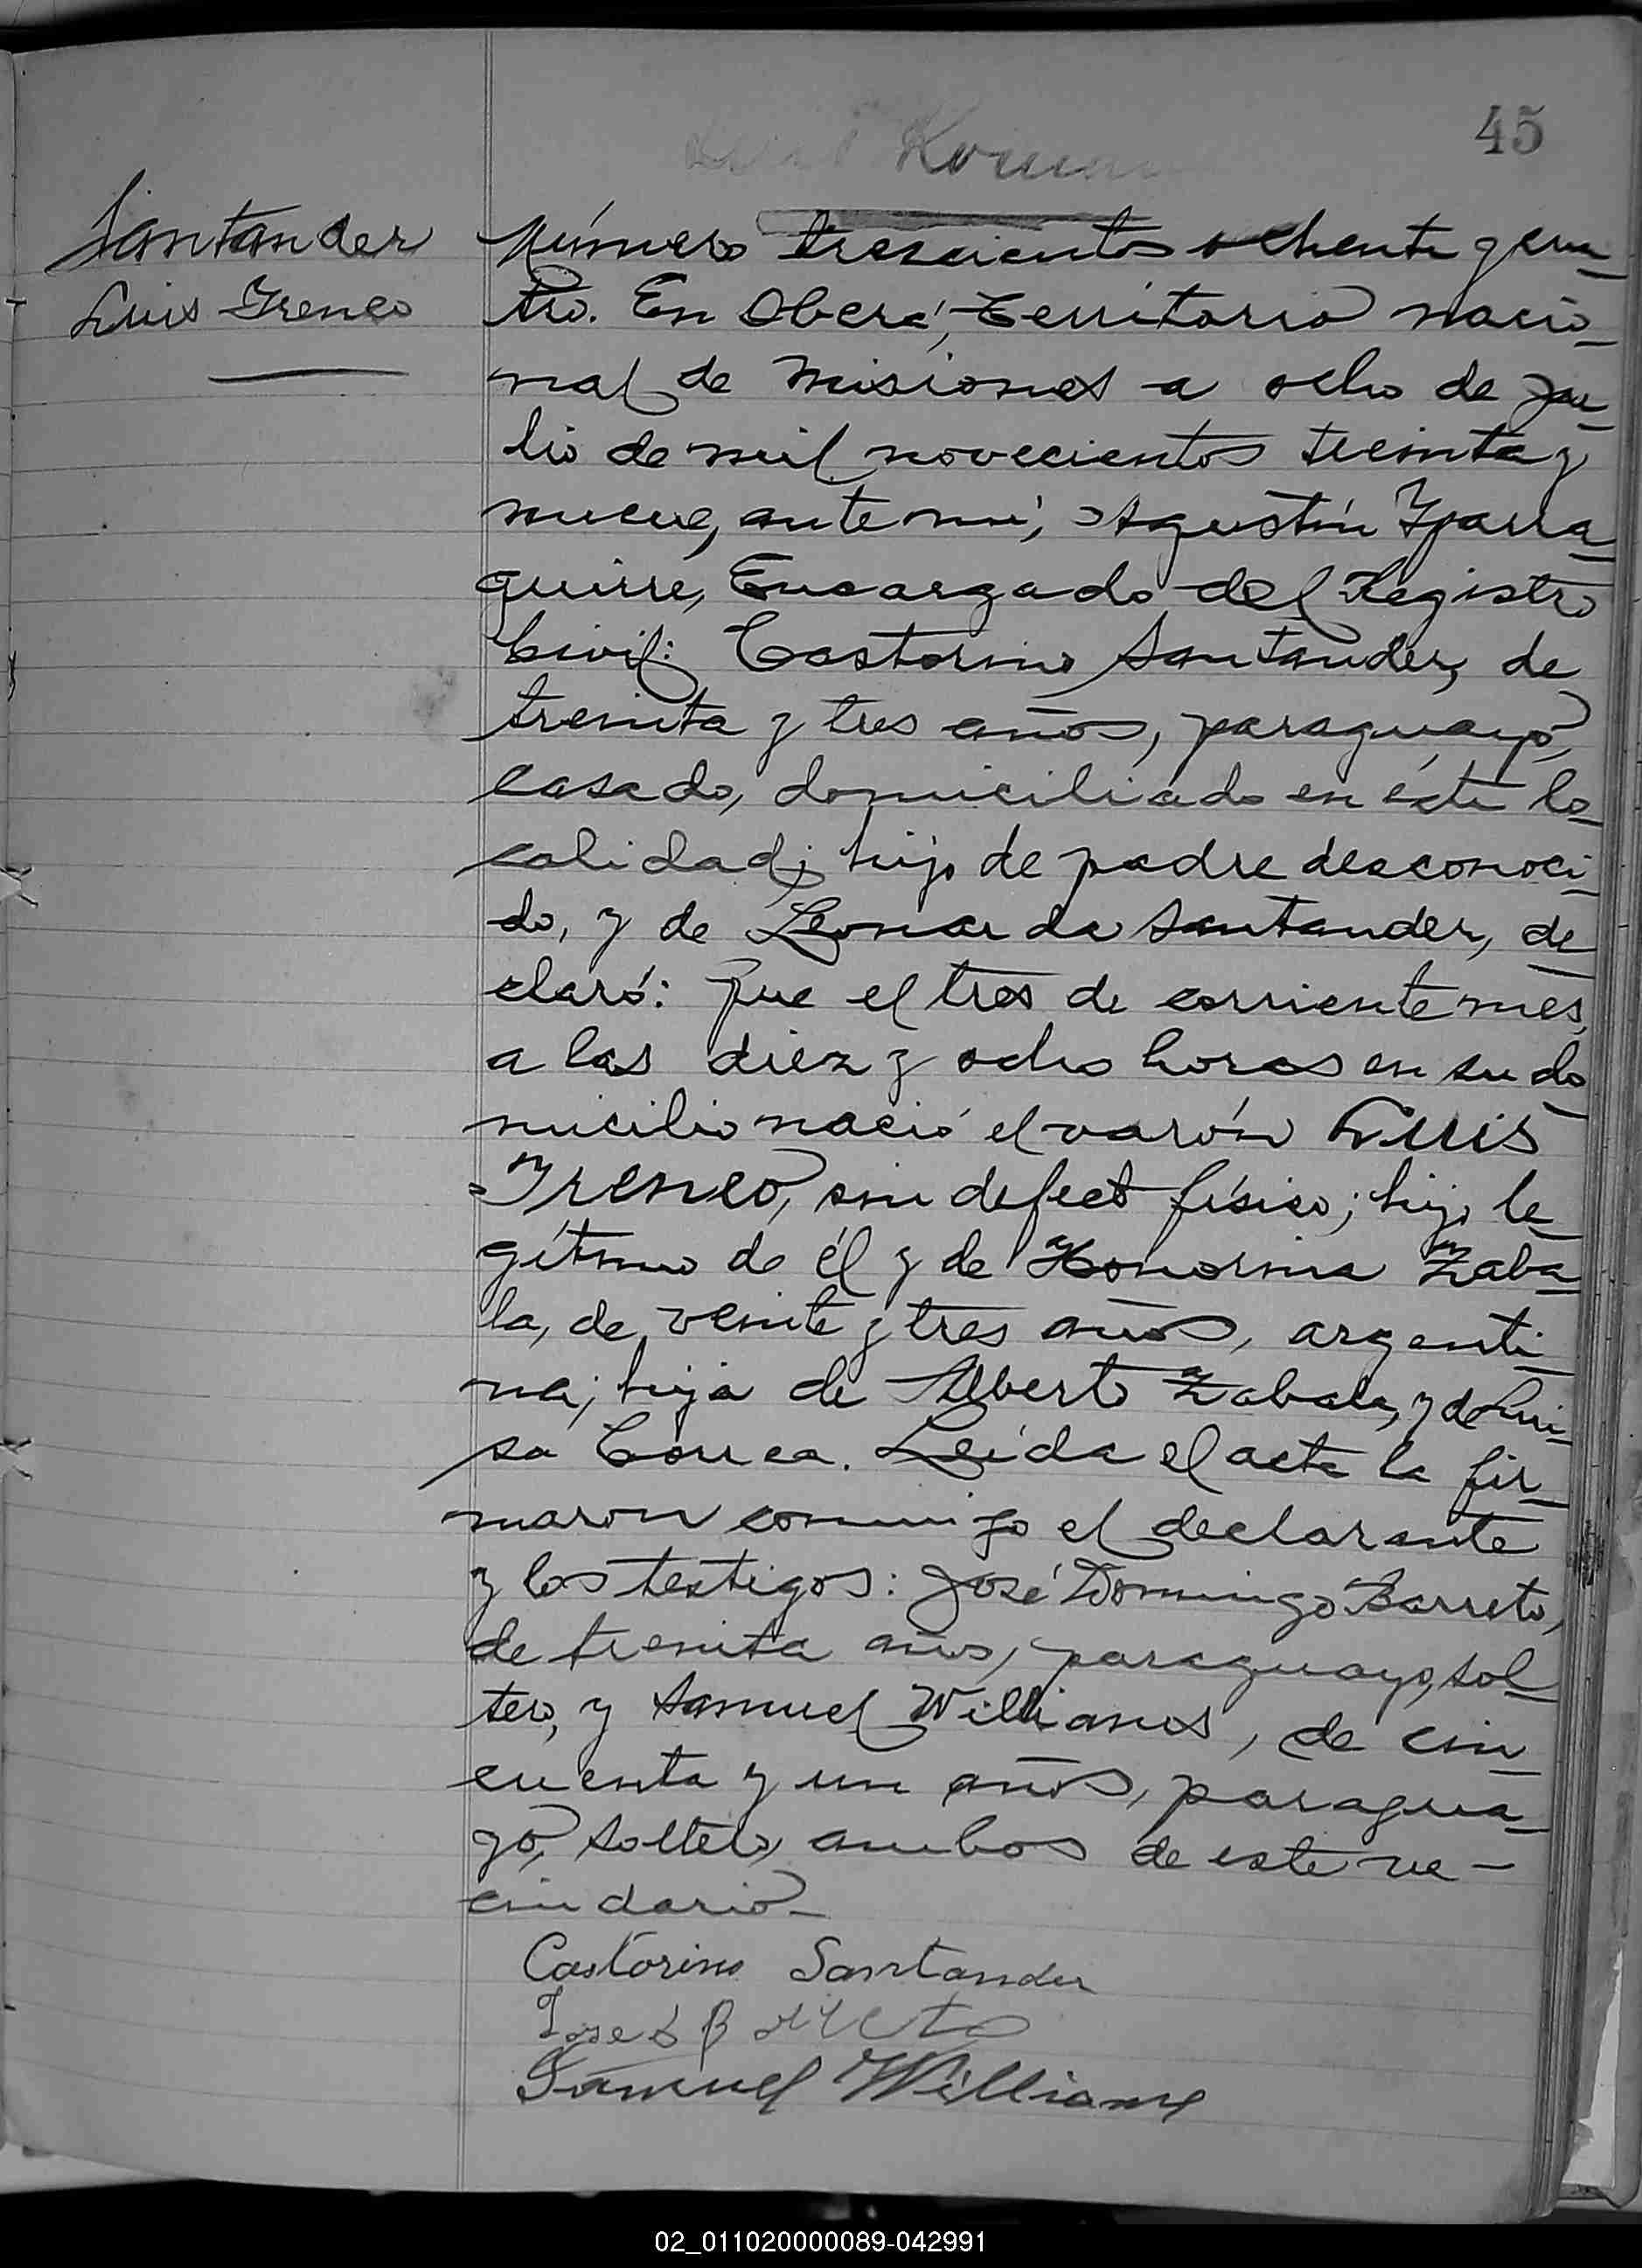 45
Santander
Luis Ireneo
Número trescientos ochenta y cua-
tro. En Oberá, Territorio nacio-
nal de Misiones a ocho de ju-
lio de mil novecientos treinta y
nueve, ante mí, Agustín Yparra-
guirre, Encargado del Registro
Civil: Castorino Santander, de
treinta y tres años, paraguayo,
casado, domiciliado en ésta lo-
calidad; hijo de padre desconoci-
do, y de Leonarda Santander, de-
claró: Que el tres de corriente mes,
a las diez y ocho horas en su do-
micilio nació el varón Luis
Ireneo, sin defecto físico; hijo le-
gítimo de él y de Honorina Zaba-
la, de veinte y tres años, argenti-
na; hija de Alberto Zabala, y de Lui-
sa Correa. Leída el acta la fir-
maron conmigo el declarante
y los testigos: José Domingo Barreto,
de treinta años, paraguayo, sol-
tero, y Samuel Willians, de cin-
cuenta y un años, paragua-
yo, soltero, ambos de este ve-
cindario-
Castorino Santander
Jose D Barreto
Samuel Willians
02_011020000089-042991